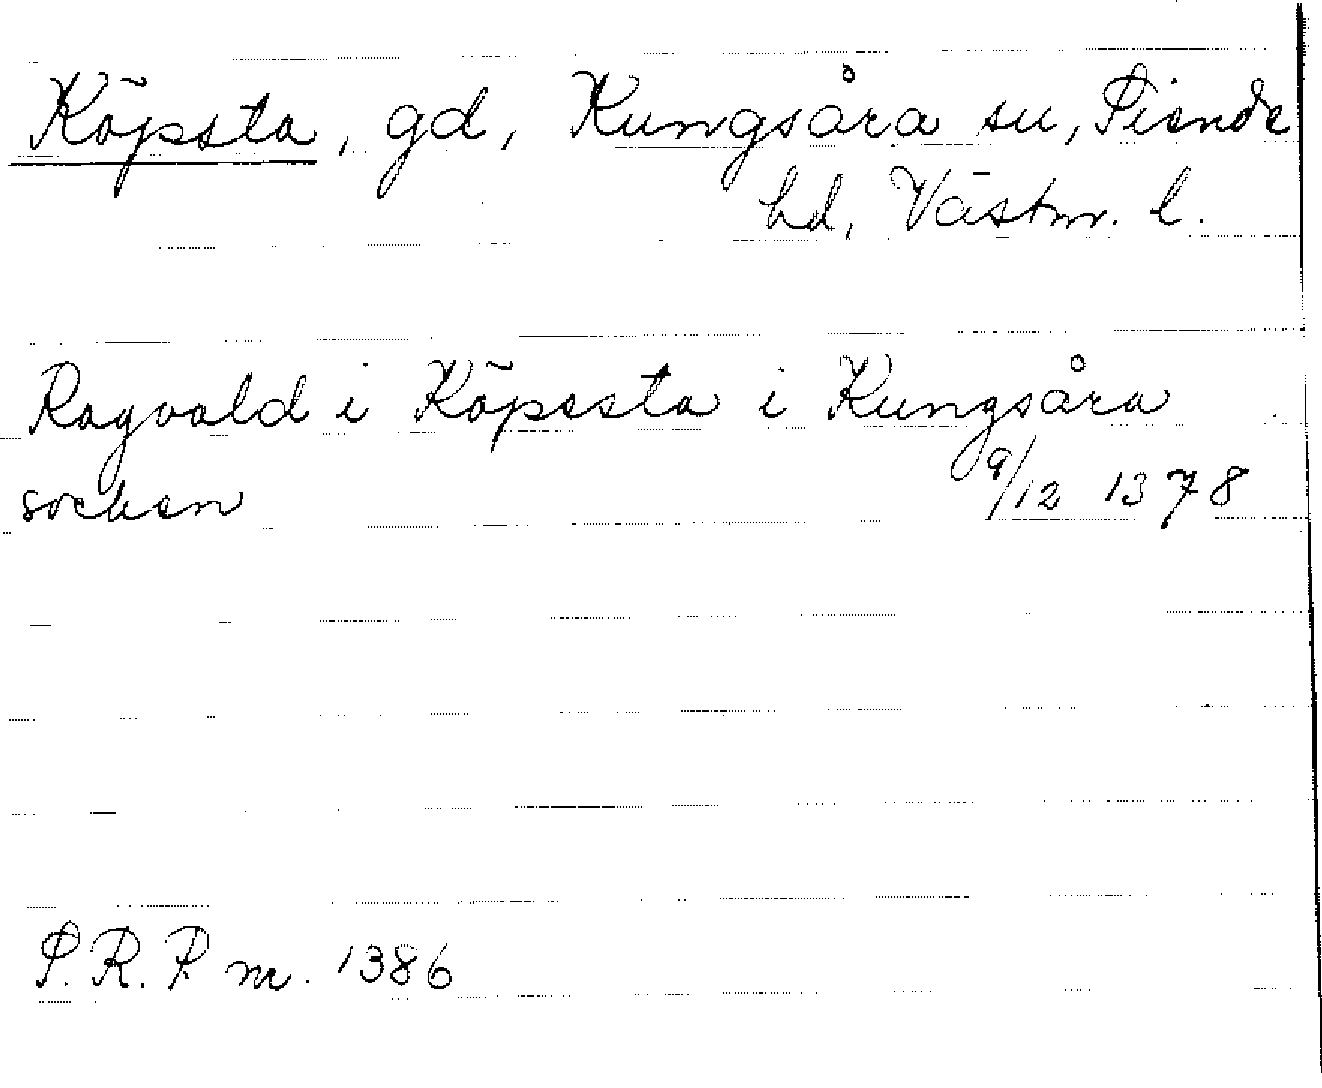 Köpsta, gd, Kungsåra sn, Siende
hd, Västm. l.
Ragvald i Köpssta i Kungsåra
socken 9/12 1378
S.R.P. nr. 1386